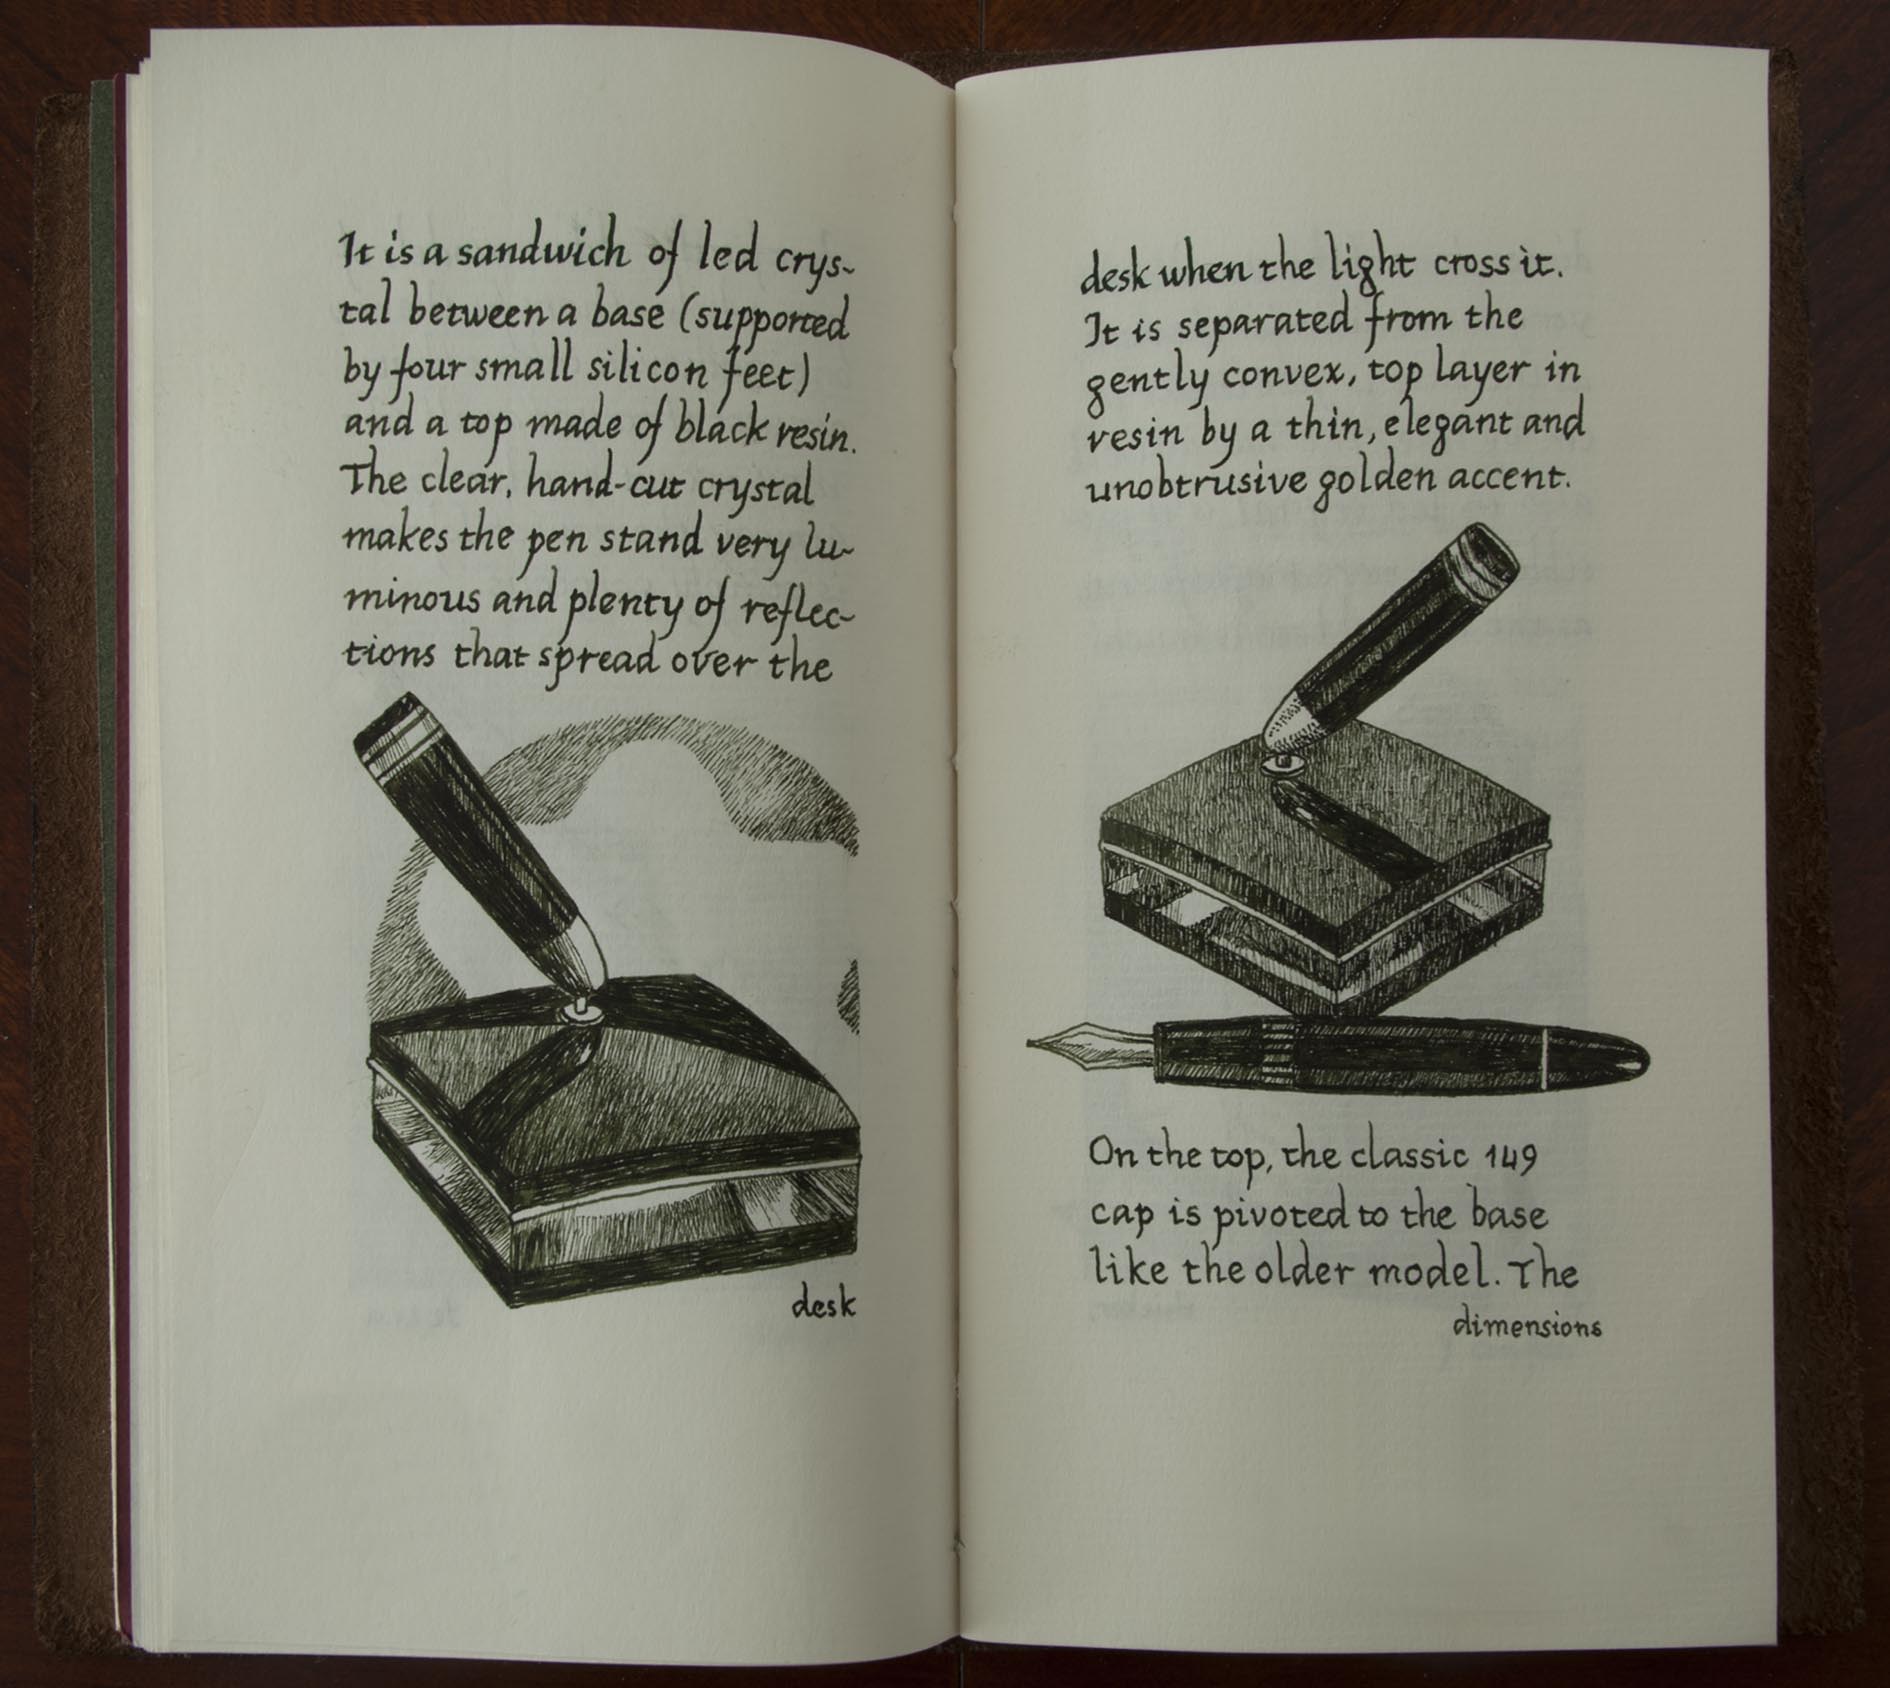 It is a sandwich of led crys-
tal between a base (supported
by four small silicon feet)
and a top made of black resin.
The clear, hand-cut crystal
makes the pen stand very lu-
minous and plenty of reflec-
tions that spread over the
desk
desk when the light cross it.
It is separated from the
gently convex, top layer in
resin by a thin, elegant and
unobtrusive golden accent.
On the top, the classic 149
cap is pivoted to the base
like the older model. The
dimensions